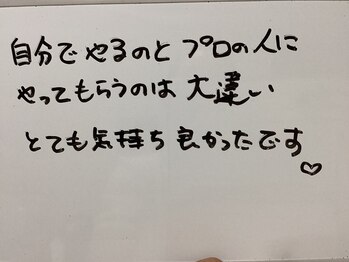 自分でやるのとプロの人に
やってもらうのは大違い
とても気持ち良かったです♡